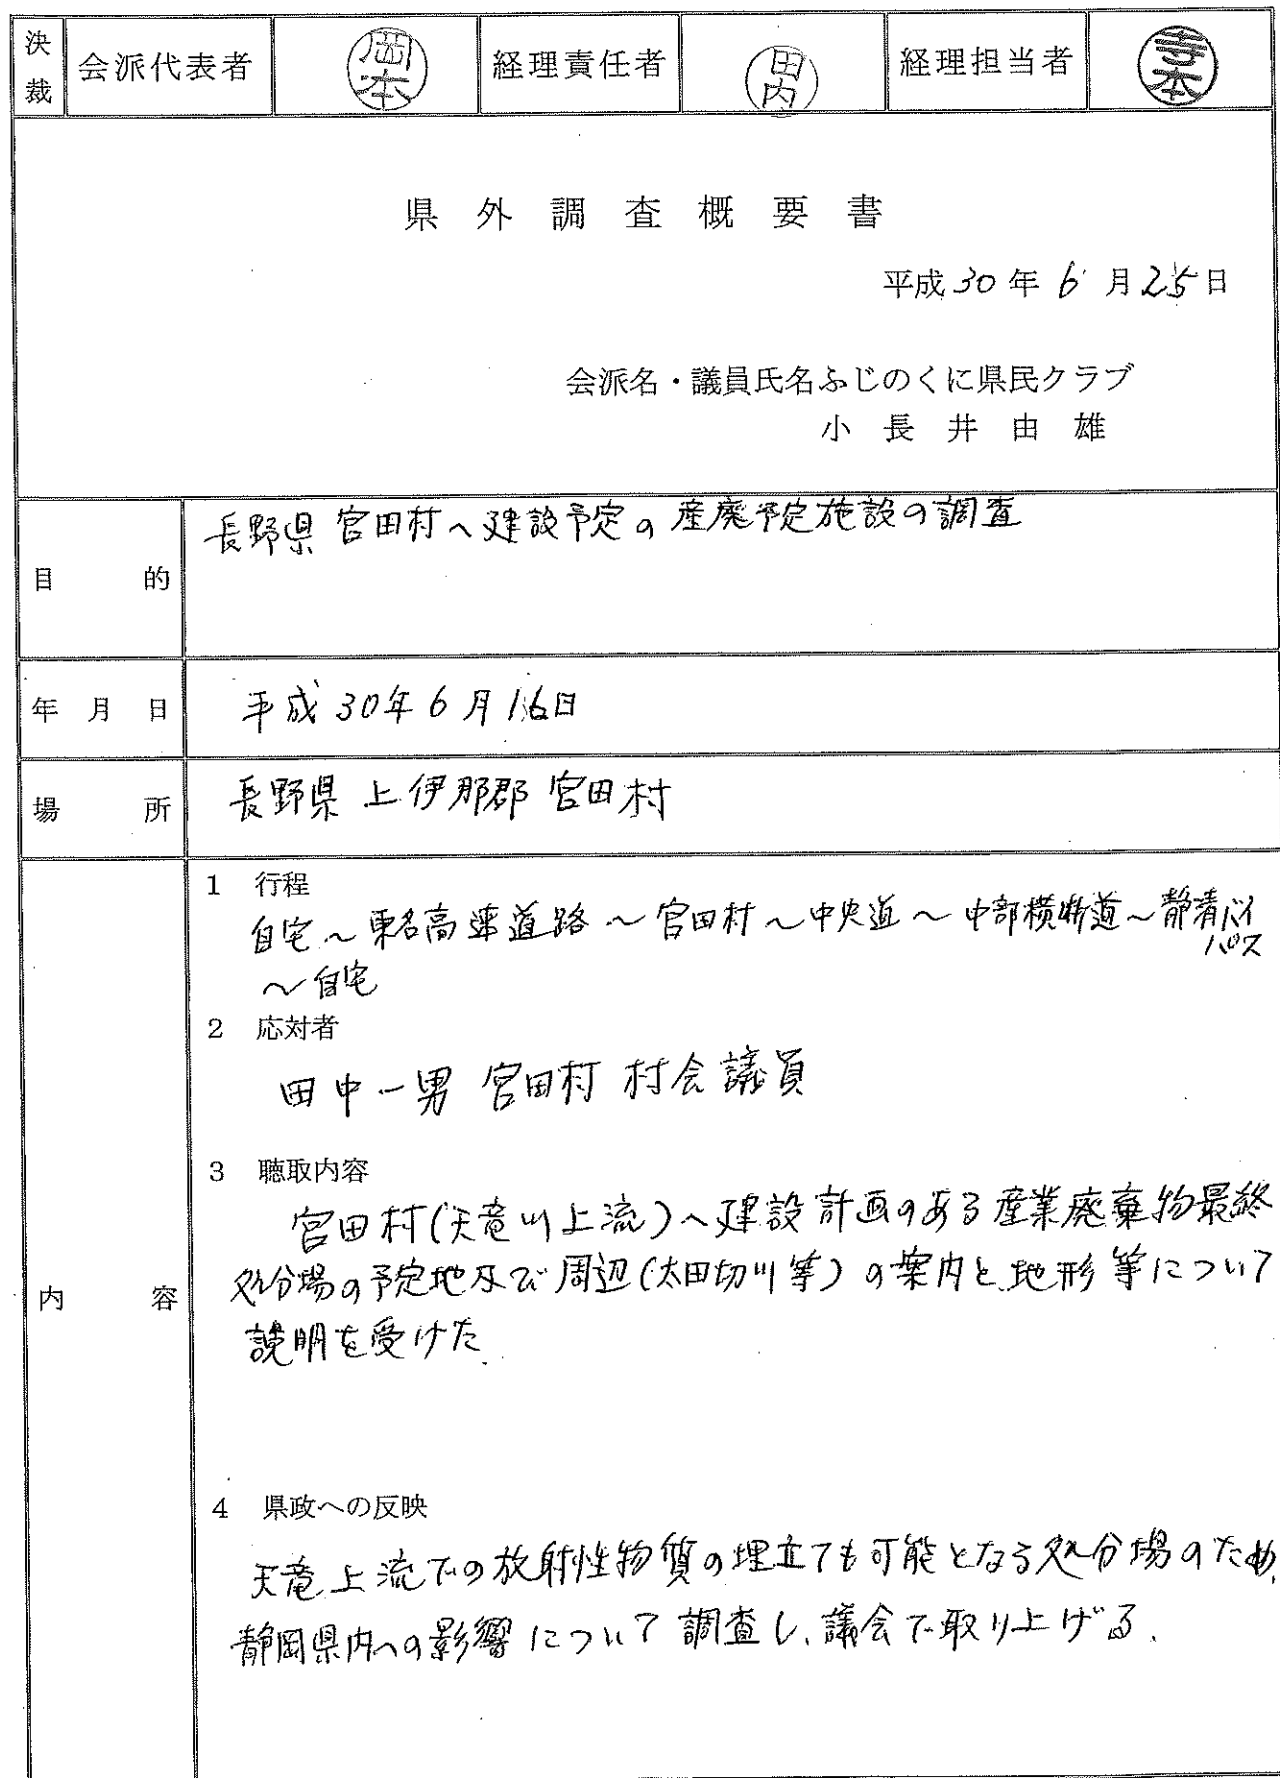 決裁 会派代表者 岡本 経理責任者 田内 経理担当者 寺本
県外調査概要書
平成30年6月25日
会派名・議員氏名ふじのくに県民クラブ
小長井由雄
目的 長野県宮田村へ建設予定の産廃予定施設の調査
年月日 平成30年6月16日
場所 長野県上伊那郡宮田村
内容
1 行程
自宅～東名高速道路～宮田村～中央道～中部横断道～静清バイパス
～自宅
2 応対者
田中一男 宮田村 村会議員
3 聴取内容
宮田村(天竜川上流)へ建設計画のある産業廃棄物最終
処分場の予定地及び周辺(太田切川等)の案内と地形等について
説明を受けた
4 県政への反映
天竜上流での放射性物質の埋立ても可能となる処分場のため、
静岡県内への影響について調査し、議会で取り上げる。